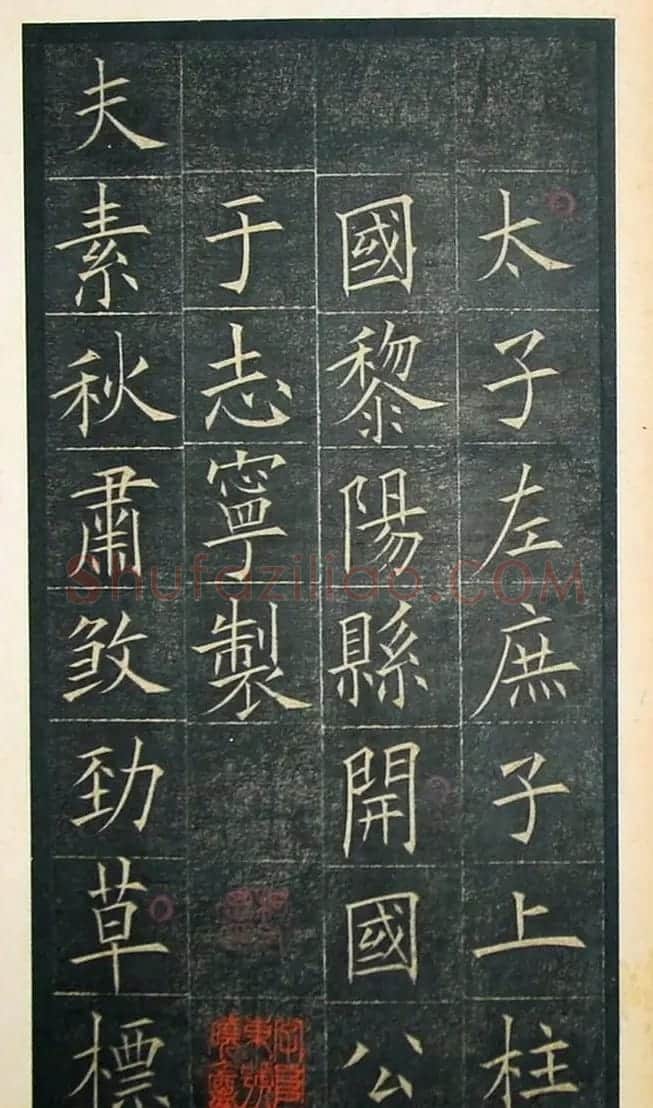 太子左庶子上柱
國黎陽縣開國公
于志寧製
夫素秋肅煞勁草標
Shufaziliao.COM